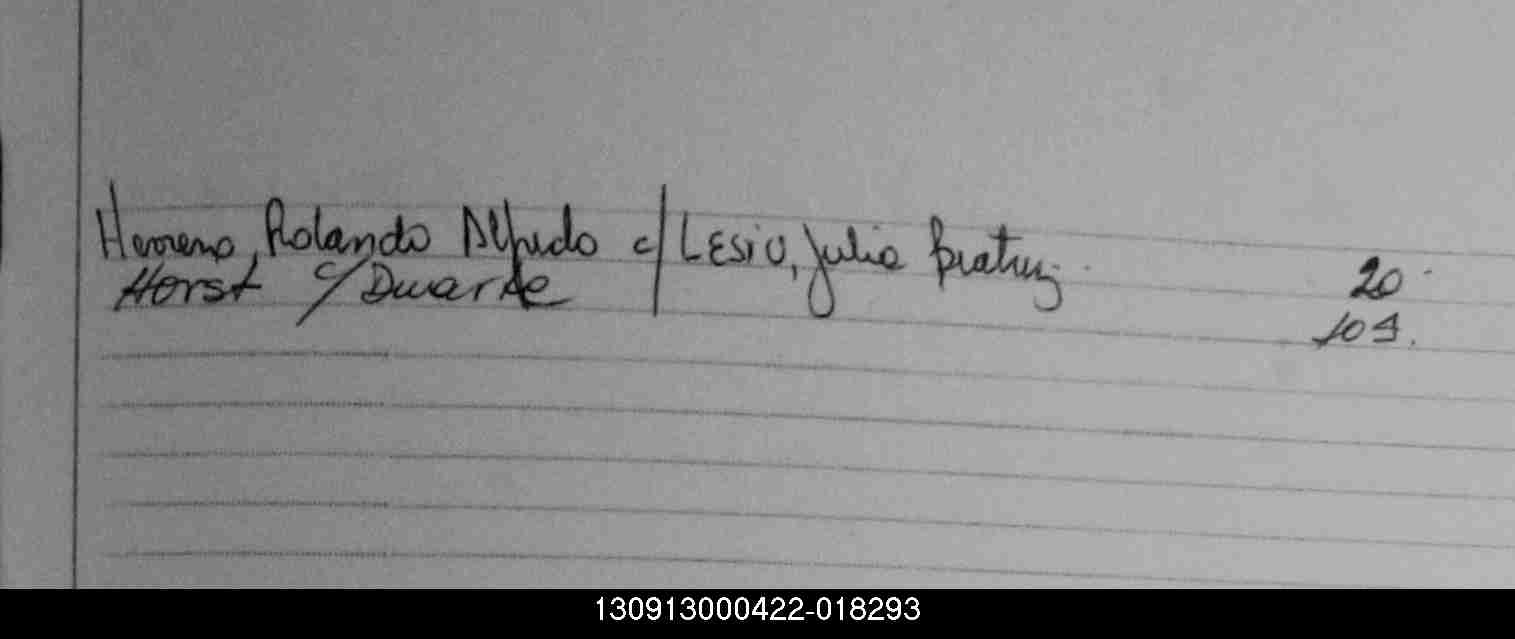 Herrera, Rolando Alfredo c/ LESiU, Julia Beatriz. 20
Horst c/ Duarte 109.
130913000422-018293